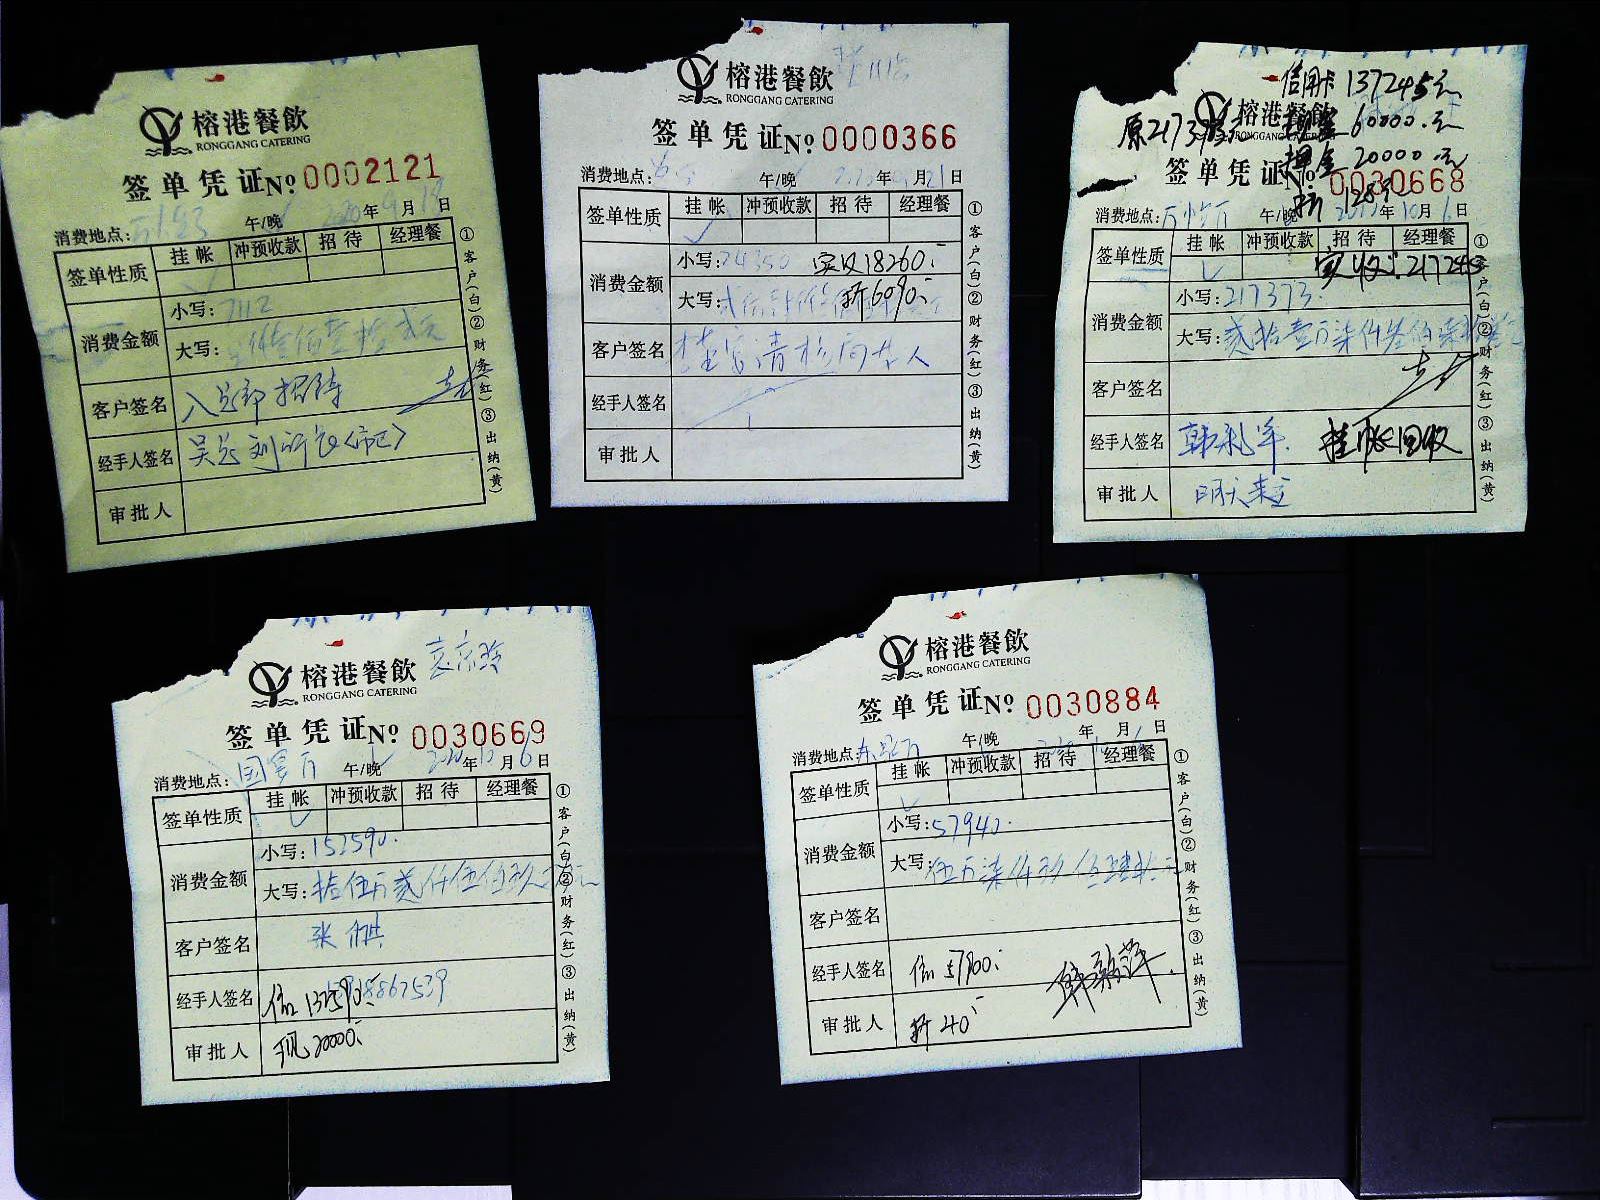 榕港餐飲
RONGGANG CATERING
签单凭证 No 0002121
消费地点: 午/晚 2020年9月19日
签单性质 挂帐 冲预收款 招待 经理餐
消费金额 小写: 7112
大写:
客户签名
经手人签名
审批人
①客户(白)②财务(红)③出纳(黄)
榕港餐飲
RONGGANG CATERING
签单凭证 No 0000366
消费地点: 午/晚 年 月21日
签单性质 挂帐 冲预收款 招待 经理餐
消费金额 小写: 24350 实收18260
大写: 折6090
客户签名
经手人签名
审批人
①客户(白)②财务(红)③出纳(黄)
信用卡 137245元
原217373元 现金 60000.元
押金 20000元
折 128元
榕港餐飲
RONGGANG CATERING
签单凭证 No 0030668
消费地点: 午/晚 年10月6日
签单性质 挂帐 冲预收款 招待 经理餐
实收: 217245
消费金额 小写: 217373.
大写: 贰拾壹万柒仟叁佰柒拾叁元
客户签名
经手人签名 挂帐回收
审批人 明天来立
①客户(白)②财务(红)③出纳(黄)
榕港餐飲
RONGGANG CATERING
签单凭证 No 0030669
消费地点: 国宴厅 午/晚 2020年10月6日
签单性质 挂帐 冲预收款 招待 经理餐
消费金额 小写: 152590.
大写: 拾伍万贰仟伍佰玖
客户签名 张
经手人签名 信 132590
审批人 现 20000
①客户(白)②财务(红)③出纳(黄)
榕港餐飲
RONGGANG CATERING
签单凭证 No 0030884
消费地点: 午/晚 年 月 日
签单性质 挂帐 冲预收款 招待 经理餐
消费金额 小写: 57940.
大写: 伍万柒仟玖佰肆拾元
客户签名
经手人签名 信 57900
审批人 折 40
①客户(白)②财务(红)③出纳(黄)